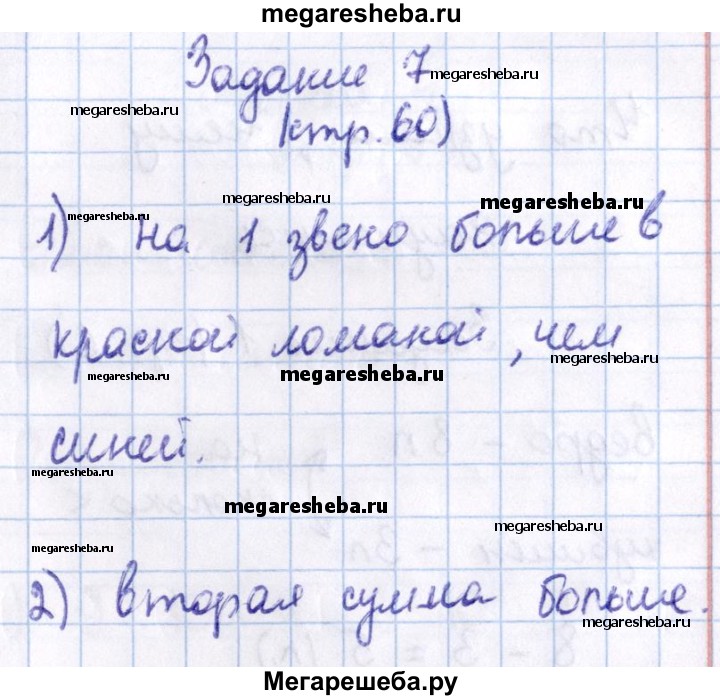 megaresheba.ru
Задание 7
megaresheba.ru
megaresheba.ru
(стр. 60)
megaresheba.ru
megaresheba.ru
megaresheba.ru
1) на 1 звено больше в
megaresheba.ru
красной ломаной, чем
megaresheba.ru
megaresheba.ru
megaresheba.ru
синей.
megaresheba.ru
megaresheba.ru
megaresheba.ru
megaresheba.ru
2) вторая сумма больше.
megaresheba.ru
Мегарешеба.ру